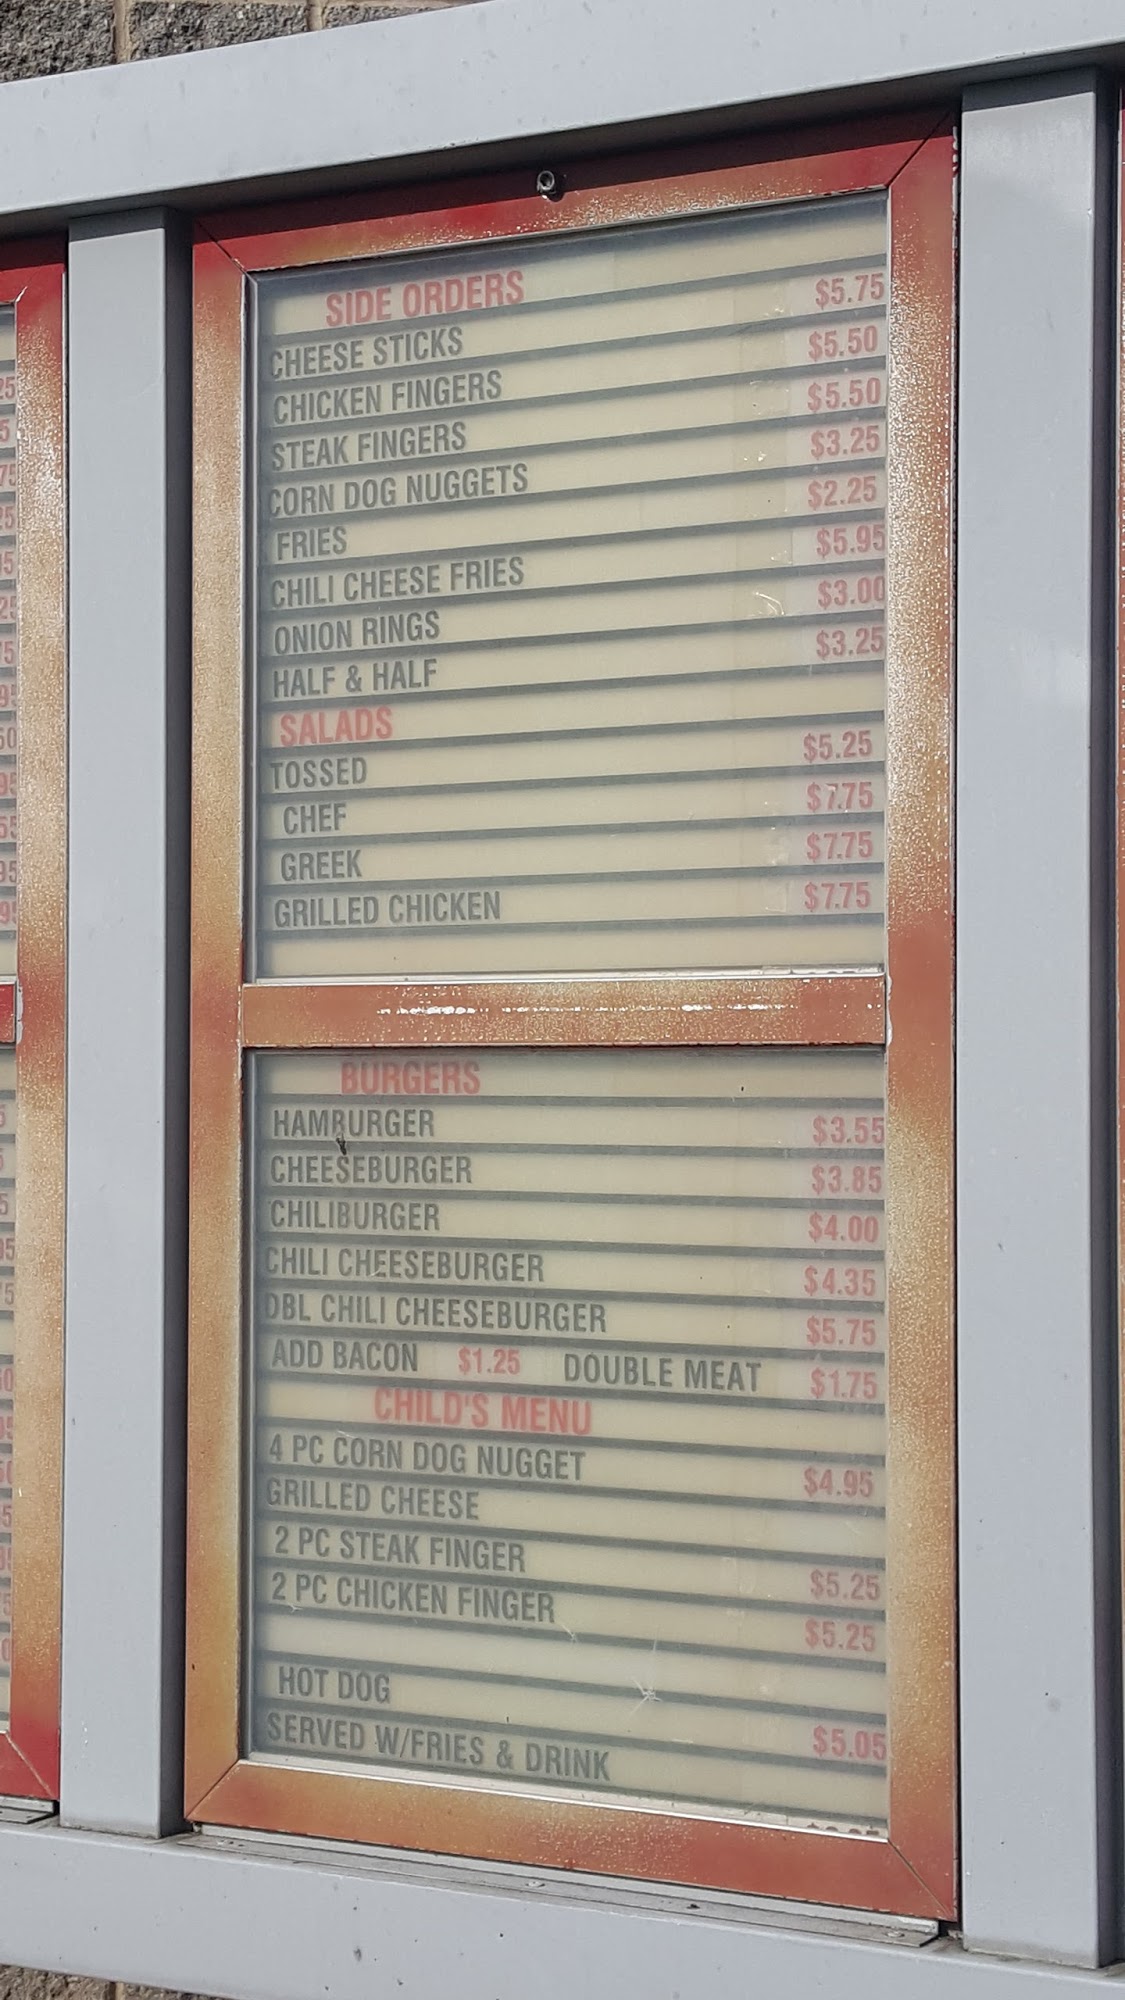 SIDE ORDERS
CHEESE STICKS $5.75
CHICKEN FINGERS $5.50
STEAK FINGERS $5.50
CORN DOG NUGGETS $3.25
FRIES $2.25
CHILI CHEESE FRIES $5.95
ONION RINGS $3.00
HALF & HALF $3.25
SALADS
TOSSED $5.25
CHEF $7.75
GREEK $7.75
GRILLED CHICKEN $7.75
BURGERS
HAMBURGER $3.55
CHEESEBURGER $3.85
CHILIBURGER $4.00
CHILI CHEESEBURGER $4.35
DBL CHILI CHEESEBURGER $5.75
ADD BACON $1.25 DOUBLE MEAT $1.75
CHILD'S MENU
4 PC CORN DOG NUGGET $4.95
GRILLED CHEESE
2 PC STEAK FINGER $5.25
2 PC CHICKEN FINGER $5.25
HOT DOG $5.05
SERVED W/FRIES & DRINK